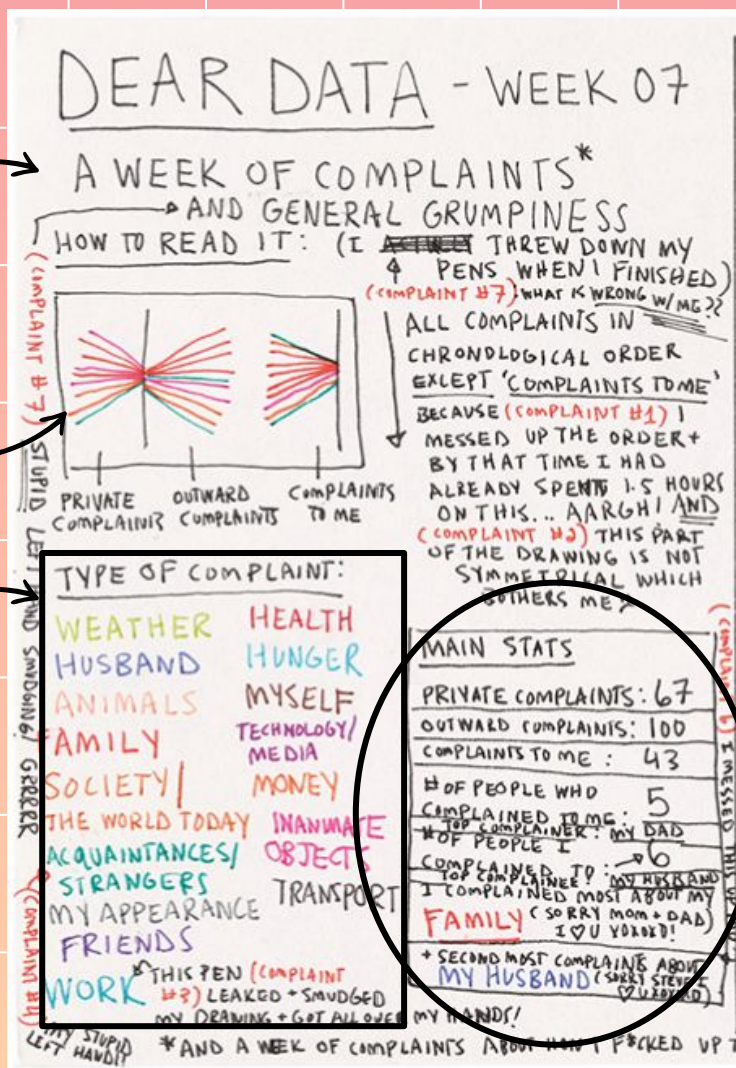 DEAR DATA - WEEK 07
A WEEK OF COMPLAINTS*
AND GENERAL GRUMPINESS
HOW TO READ IT: (I THREW DOWN MY
PENS WHEN I FINISHED)
(COMPLAINT #7): WHAT IS WRONG W/ ME??
ALL COMPLAINTS IN
CHRONOLOGICAL ORDER
EXCEPT 'COMPLAINTS TO ME'
BECAUSE (COMPLAINT #1) I
MESSED UP THE ORDER +
BY THAT TIME I HAD
ALREADY SPENT 1.5 HOURS
ON THIS... AARGH! AND
(COMPLAINT #2) THIS PART
OF THE DRAWING IS NOT
SYMMETRICAL WHICH
BOTHERS ME
PRIVATE
COMPLAINTS
OUTWARD
COMPLAINTS
COMPLAINTS
TO ME
(COMPLAINT #7) STUPID LEFT HAND SMUDGING! GRRRRR
TYPE OF COMPLAINT:
WEATHER
HUSBAND
ANIMALS
FAMILY
SOCIETY/
THE WORLD TODAY
ACQUAINTANCES/
STRANGERS
MY APPEARANCE
FRIENDS
WORK
HEALTH
HUNGER
MYSELF
TECHNOLOGY/
MEDIA
MONEY
INANIMATE
OBJECTS
TRANSPORT
THIS PEN (COMPLAINT
#3) LEAKED + SMUDGED
MY DRAWING + GOT ALL OVER MY HANDS!
(COMPLAINT #4)
MY STUPID
LEFT HAND!!
MAIN STATS
PRIVATE COMPLAINTS: 67
OUTWARD COMPLAINTS: 100
COMPLAINTS TO ME: 43
# OF PEOPLE WHO
COMPLAINED TO ME: 5
TOP COMPLAINER: MY DAD
# OF PEOPLE I
COMPLAINED TO: 6
TOP COMPLAINEE: MY HUSBAND
I COMPLAINED MOST ABOUT MY
FAMILY (SORRY MOM + DAD)
I ♡ U XOXOXO!
+ SECOND MOST COMPLAINTS ABOUT
MY HUSBAND (SORRY STEVE I
♡ U XOXOXO)
I MESSED THIS UP
*AND A WEEK OF COMPLAINTS ABOUT HOW I F*CKED UP